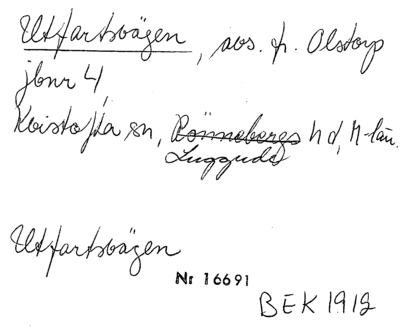 Utfartsvägen, avs. fr. Olstorp
jbnr 4
Kvistofta sn, Rönnebergs hd, M-län.
Luggude
Utfartsvägen
Nr 16691
BEK 1912